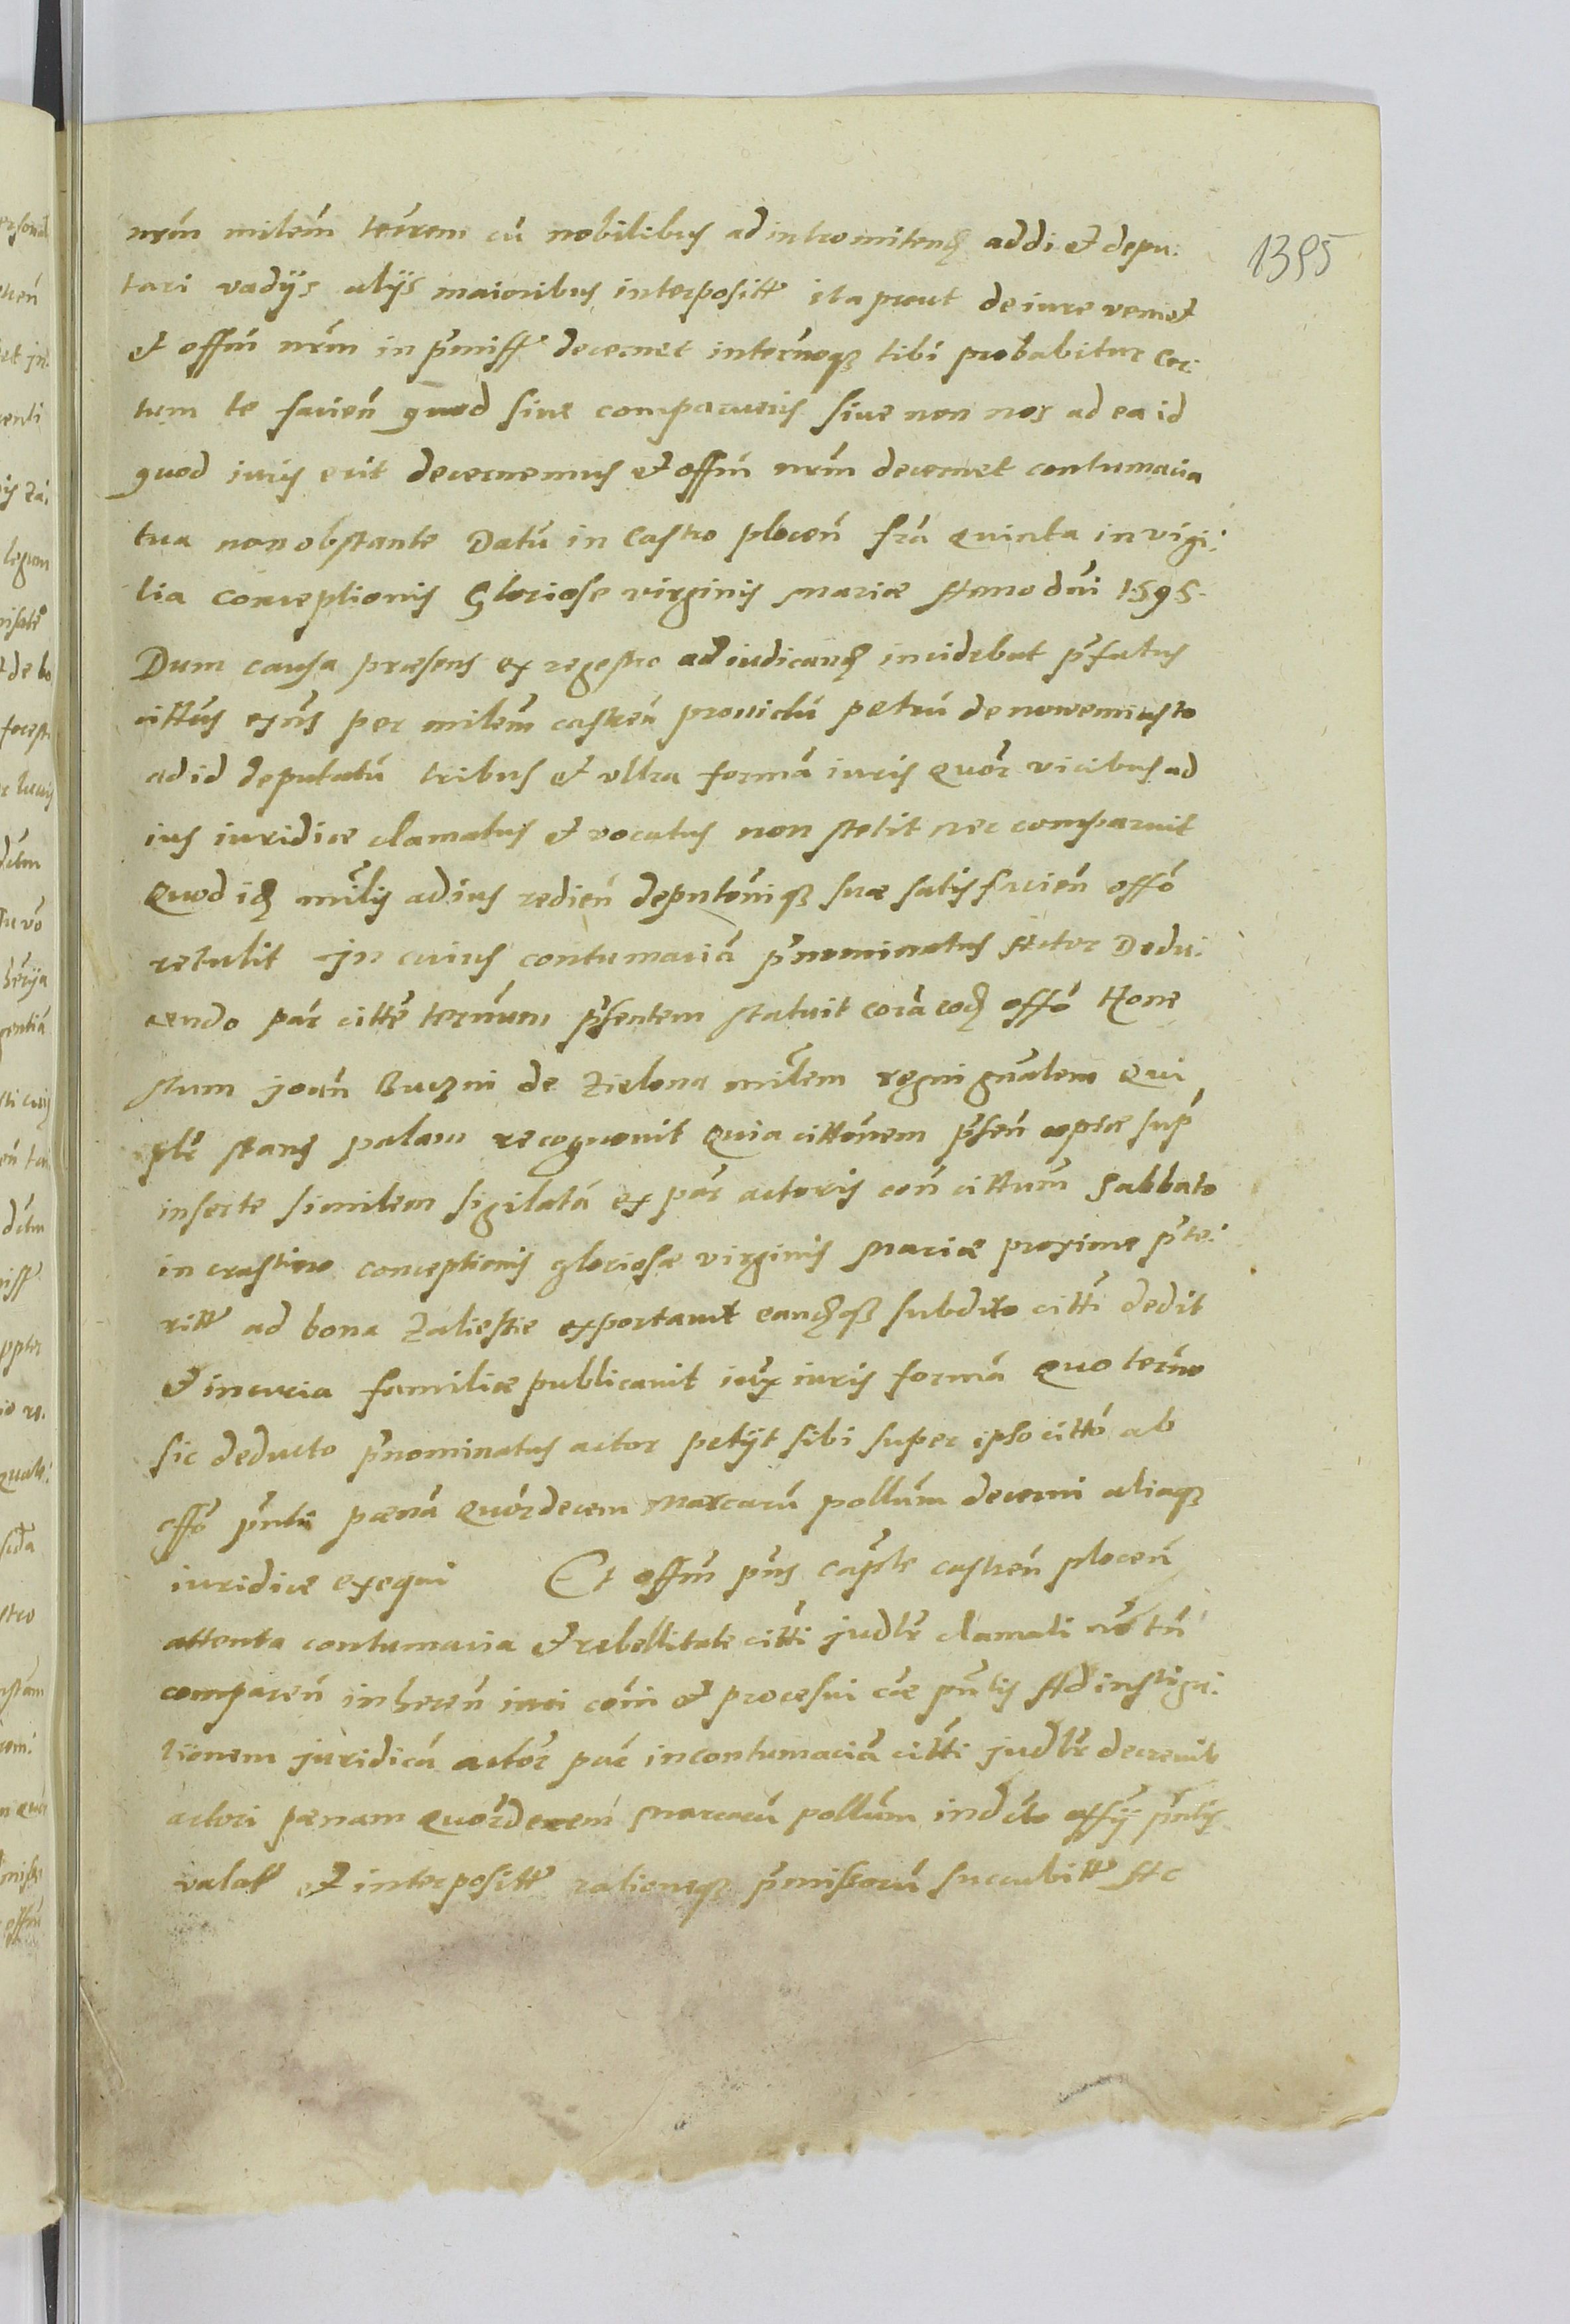 1395
nrm̃ milem̃ terrem̃ cũ nobilibus ad intromitend̃ addi et depu:
tari vadijs alijs maioribus interpositt̃ ita prout de iure veniet
et offm̃ nrm̃ in p̃miss̃ decernet inter̃noq̃ tibi probabitur Cer:
tum te facieñ quod siue comparueris siue non nos ad ea id
quod iuris erit decernemus et offm̃ nrm̃ decernet contumacia
tua non obstante Datũ in Castro ploceñ fr̃a quinta in vigi:
lia conceptionis Gloriose virginis Mariæ Anno dñi 1595.
Dum causa præsens ex regestro ad iudicand̃ incidebat p̃fatus
cittus ex̃ns per milem̃ castreñ prouidũ petrũ de nowemiasto
ad id deputatũ tribus et vltra formã iuris quor̃ vicibus ad
ius iuridice clamatus et vocatus non stetit nec comparuit
Quod id̃ mil̃is ad ius redieñ deputõniq̃ suæ satis facieñ offõ
retulit In cuius contumaciã p̃nominatus Actor Dedu:
cendo par̃ citt̃e ter̃num p̃sentem statuit corã eod̃ offõ Hone
stum joañ Buczni de Zielona mil̃em regni gñalem Qui
pl̃r stans palam recognouit Quia cittõnem p̃señ copiæ sup̃
inserte similem sigilatã ex par̃ actoris coñ cittum̃ Sabbato
in crastino conceptionis gloriosæ virginis Mariæ proxime p̃te:
ritt̃ ad bona Zaliesie exportauit eand̃q̃ subdito citt̃i dedit
et in curia familiæ publicauit iux̃ iuris formã Quo ter̃no
sic deducto p̃nominatus actor petijt sibi super ipso cittõ ab
offõ p̃nti pænã quor̃decem Marcarũ pollum̃ decerni aliaq̃
iuridice exequi Et offm̃ p̃ns cap̃le castreñ ploceñ
attenta contumacia et rebellitate citt̃i judl̃r clamati
compareñ inhereñ iuri com̃i et processui cãe p̃ntis Ad instiga:
tionem juridicã actor̃ par̃ in contumaciã citt̃i judl̃r decreuit
actori pænam quor̃decem Marcarũ pollum̃ in dc̃to offij p̃ntis
valat̃ et interpositt̃ rationeq̃ p̃missorũ succubitt̃ Ac